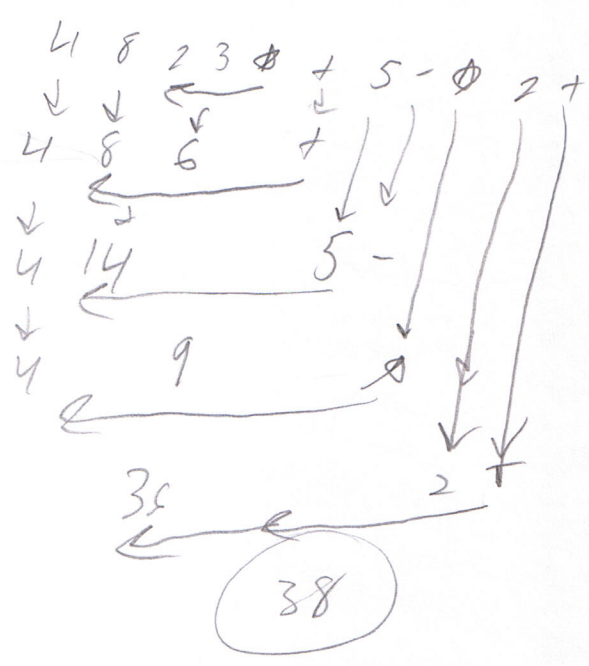 4 8 2 3 * + 5 - * 2 +
4 8 6 +
4 14 5 -
4 9 *
2 +
38